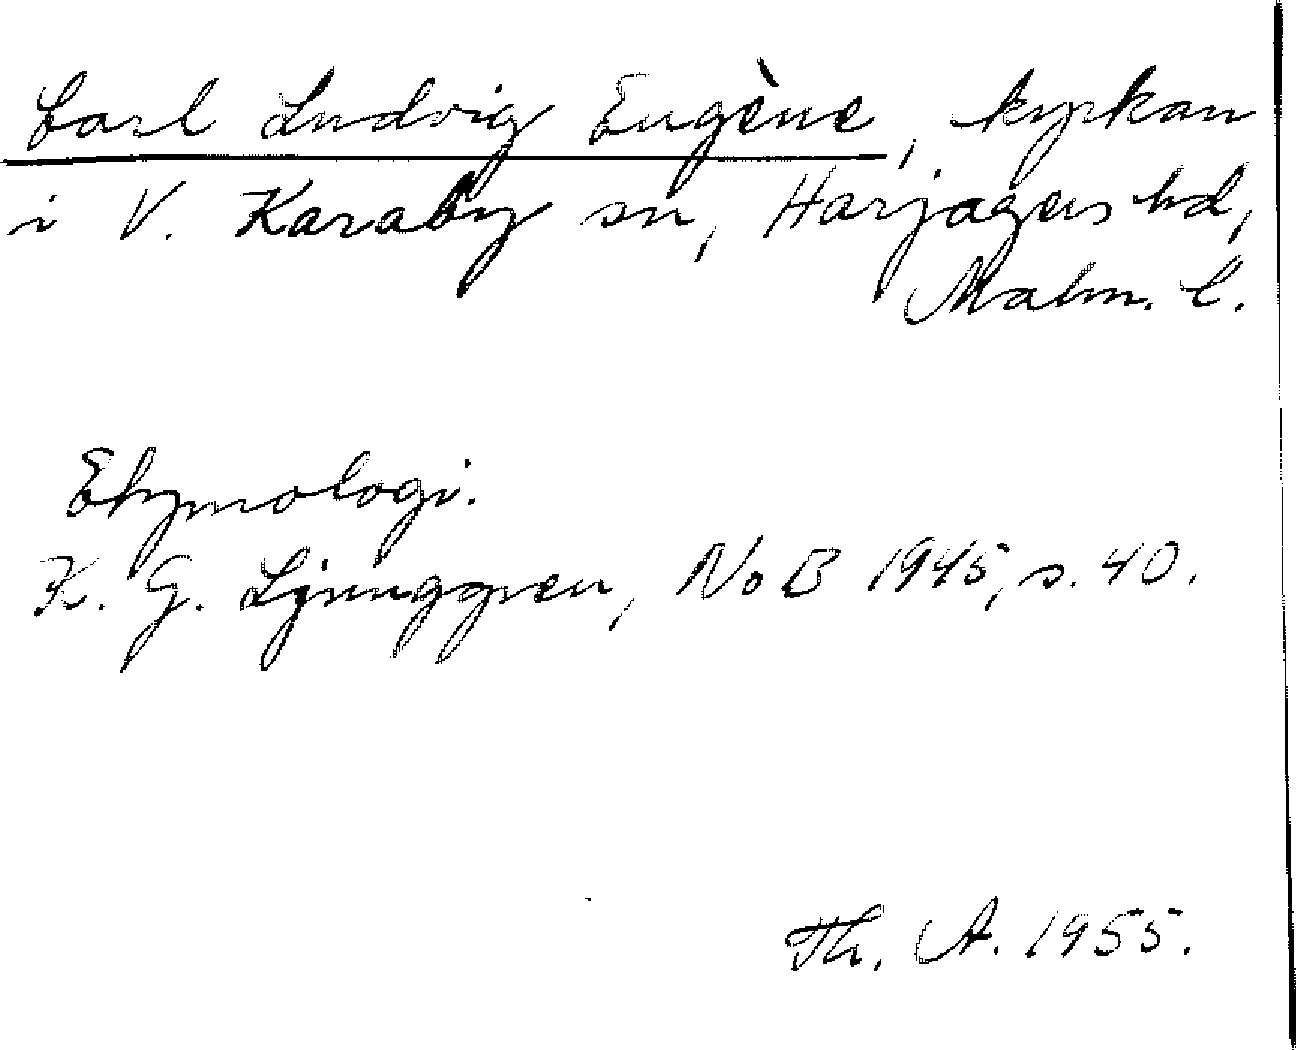 Carl Ludvig Eugène, kyrkan
i V. Karaby sn, Harjagers hd,
Malm. l.
Etymologi.
K. G. Ljunggren, NoB 1945, s. 40.
Th. A. 1955.